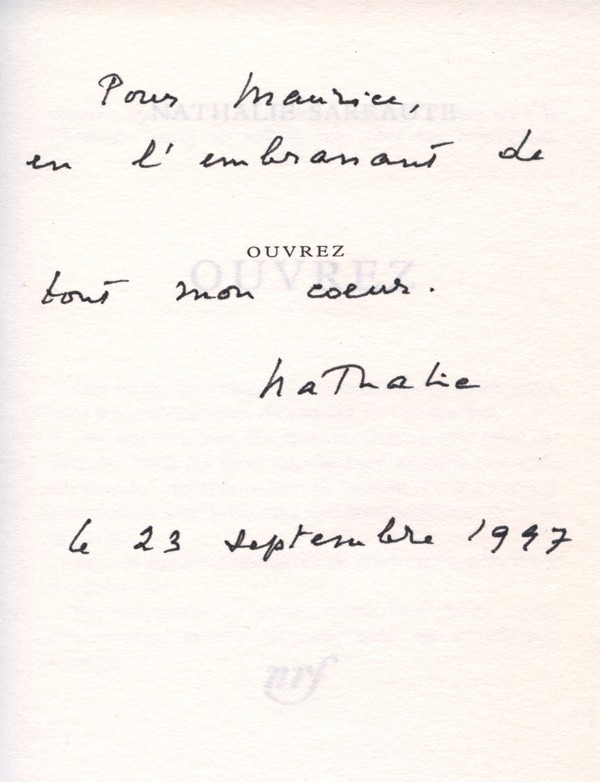 Pour Maurice,
NATHALIE SARRAUTE
en l'embrassant de
OUVREZ
OUVREZ
tout mon coeur.
Nathalie
le 23 septembre 1997
nrf